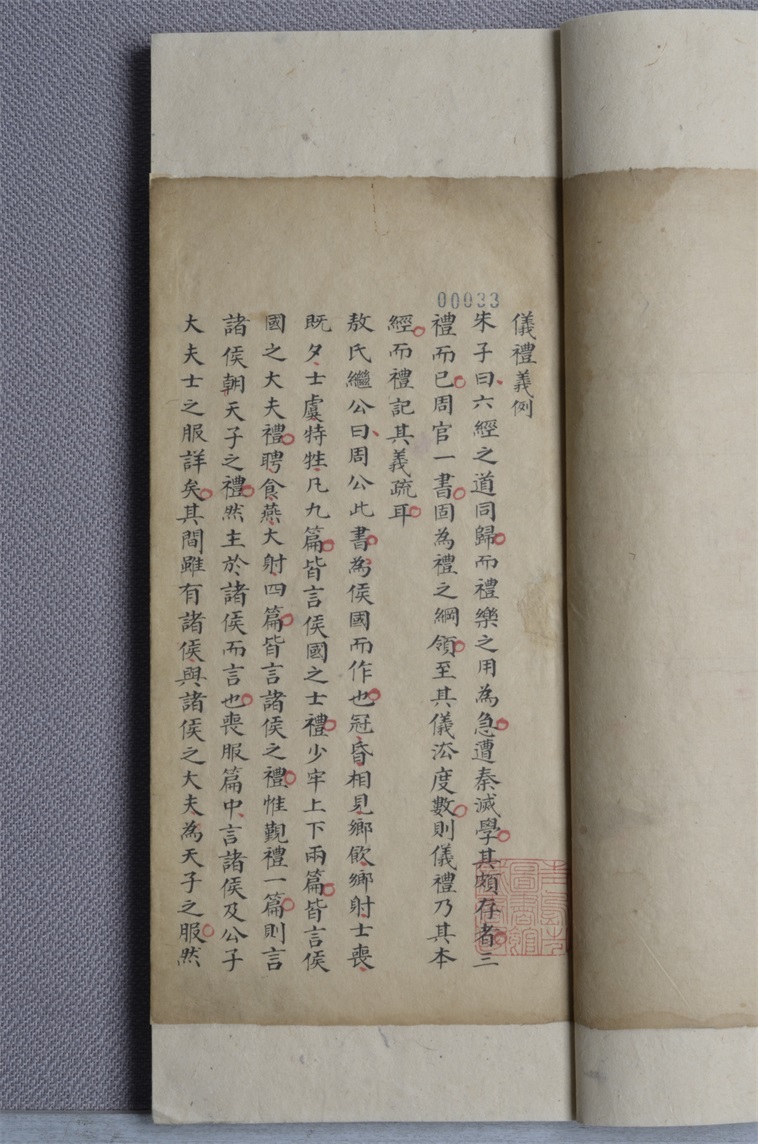 00033
儀禮義例
朱子曰六經之道同歸而禮樂之用為急遭秦滅學其頗存者三
禮而已周官一書固為禮之綱領至其儀法度數則儀禮乃其本
經而禮記其義疏耳
敖氏繼公曰周公此書為侯國而作也冠昏相見鄉飲鄉射士喪
既夕士虞特牲凡九篇皆言侯國之士禮少牢上下兩篇皆言侯
國之大夫禮聘食燕大射四篇皆言諸侯之禮惟覲禮一篇則言
諸侯朝天子之禮然主於諸侯而言也喪服篇中言諸侯及公子
大夫士之服詳矣其間雖有諸侯與諸侯之大夫為天子之服然